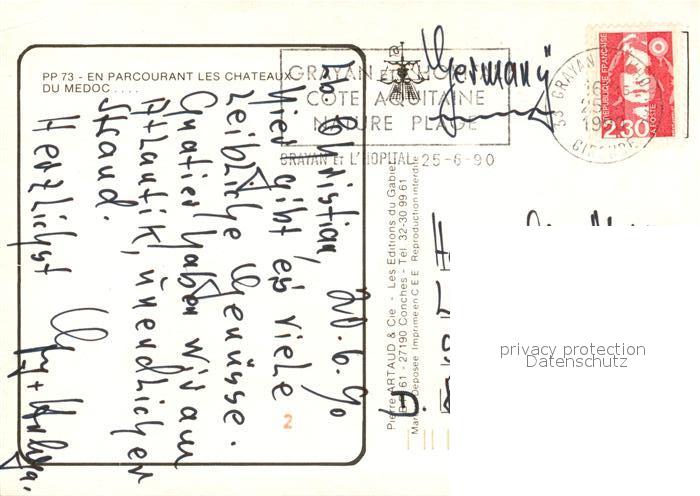 PP 73 - EN PARCOURANT LES CHATEAUX
DU MEDOC . . . .
GRAYAN ET L'HOPITAL
COTE AQUITAINE
NATURE PLAGE
GRAYAN ET L'HOPITAL 25-6-90
33 GRAYAN
GIRONDE
REPUBLIQUE FRANÇAISE
2,30
LA POSTE
Germany
20.6.90
Christian,
hier gibt es viele
leibliche Genüsse.
Gratis haben wir am
Atlantik, unendlichen
Strand.
Herzlichst
Pierre ARTAUD & Cie - Les Editions du Gabier
BP 161 - 27190 Conches - Tél. 32-30 99 61
Marque Déposée Imprimé en C E E Reproduction interdite
D.
2
privacy protection
Datenschutz